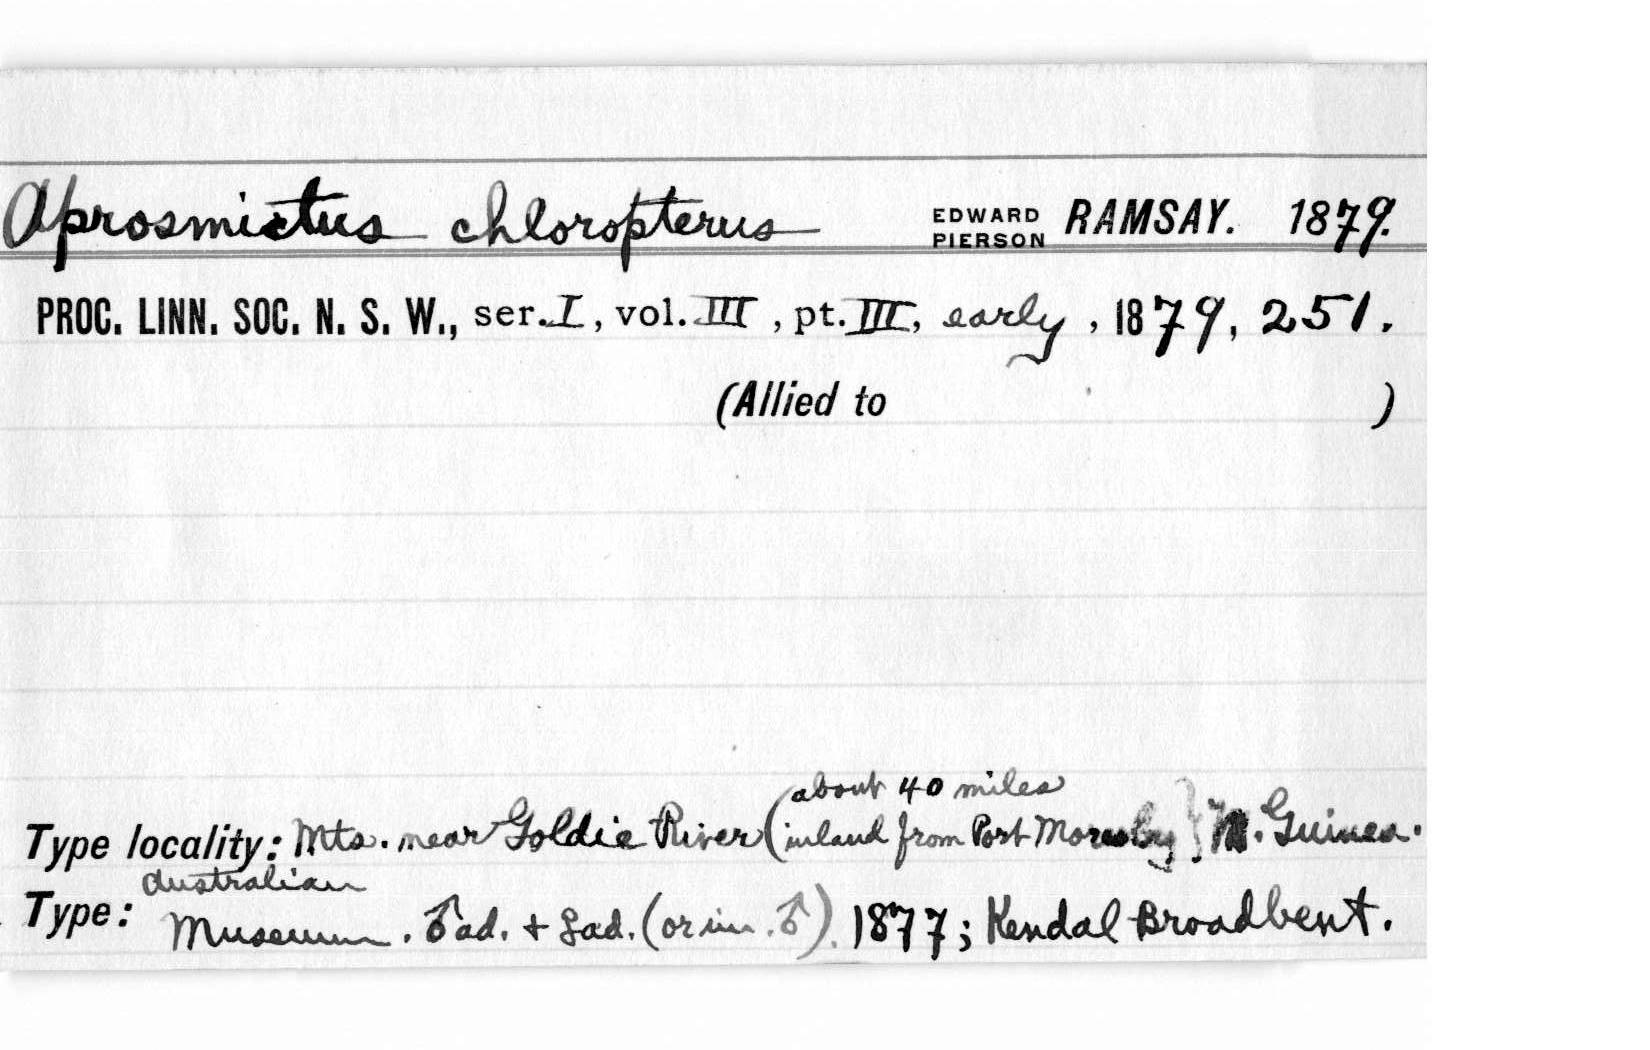 Aprosmictus chloropterus EDWARD PIERSON RAMSAY. 1879.
PROC. LINN. SOC. N. S. W., ser. I, vol. III, pt. III, early, 1879, 251.
(Allied to )
about 40 miles
Type locality: Mts. near Goldie River (inland from Port Moresby) N. Guinea.
Australian
Type: Museum. ♂ ad. + ♀ ad. (or im. ♂). 1877; Kendal Broadbent.